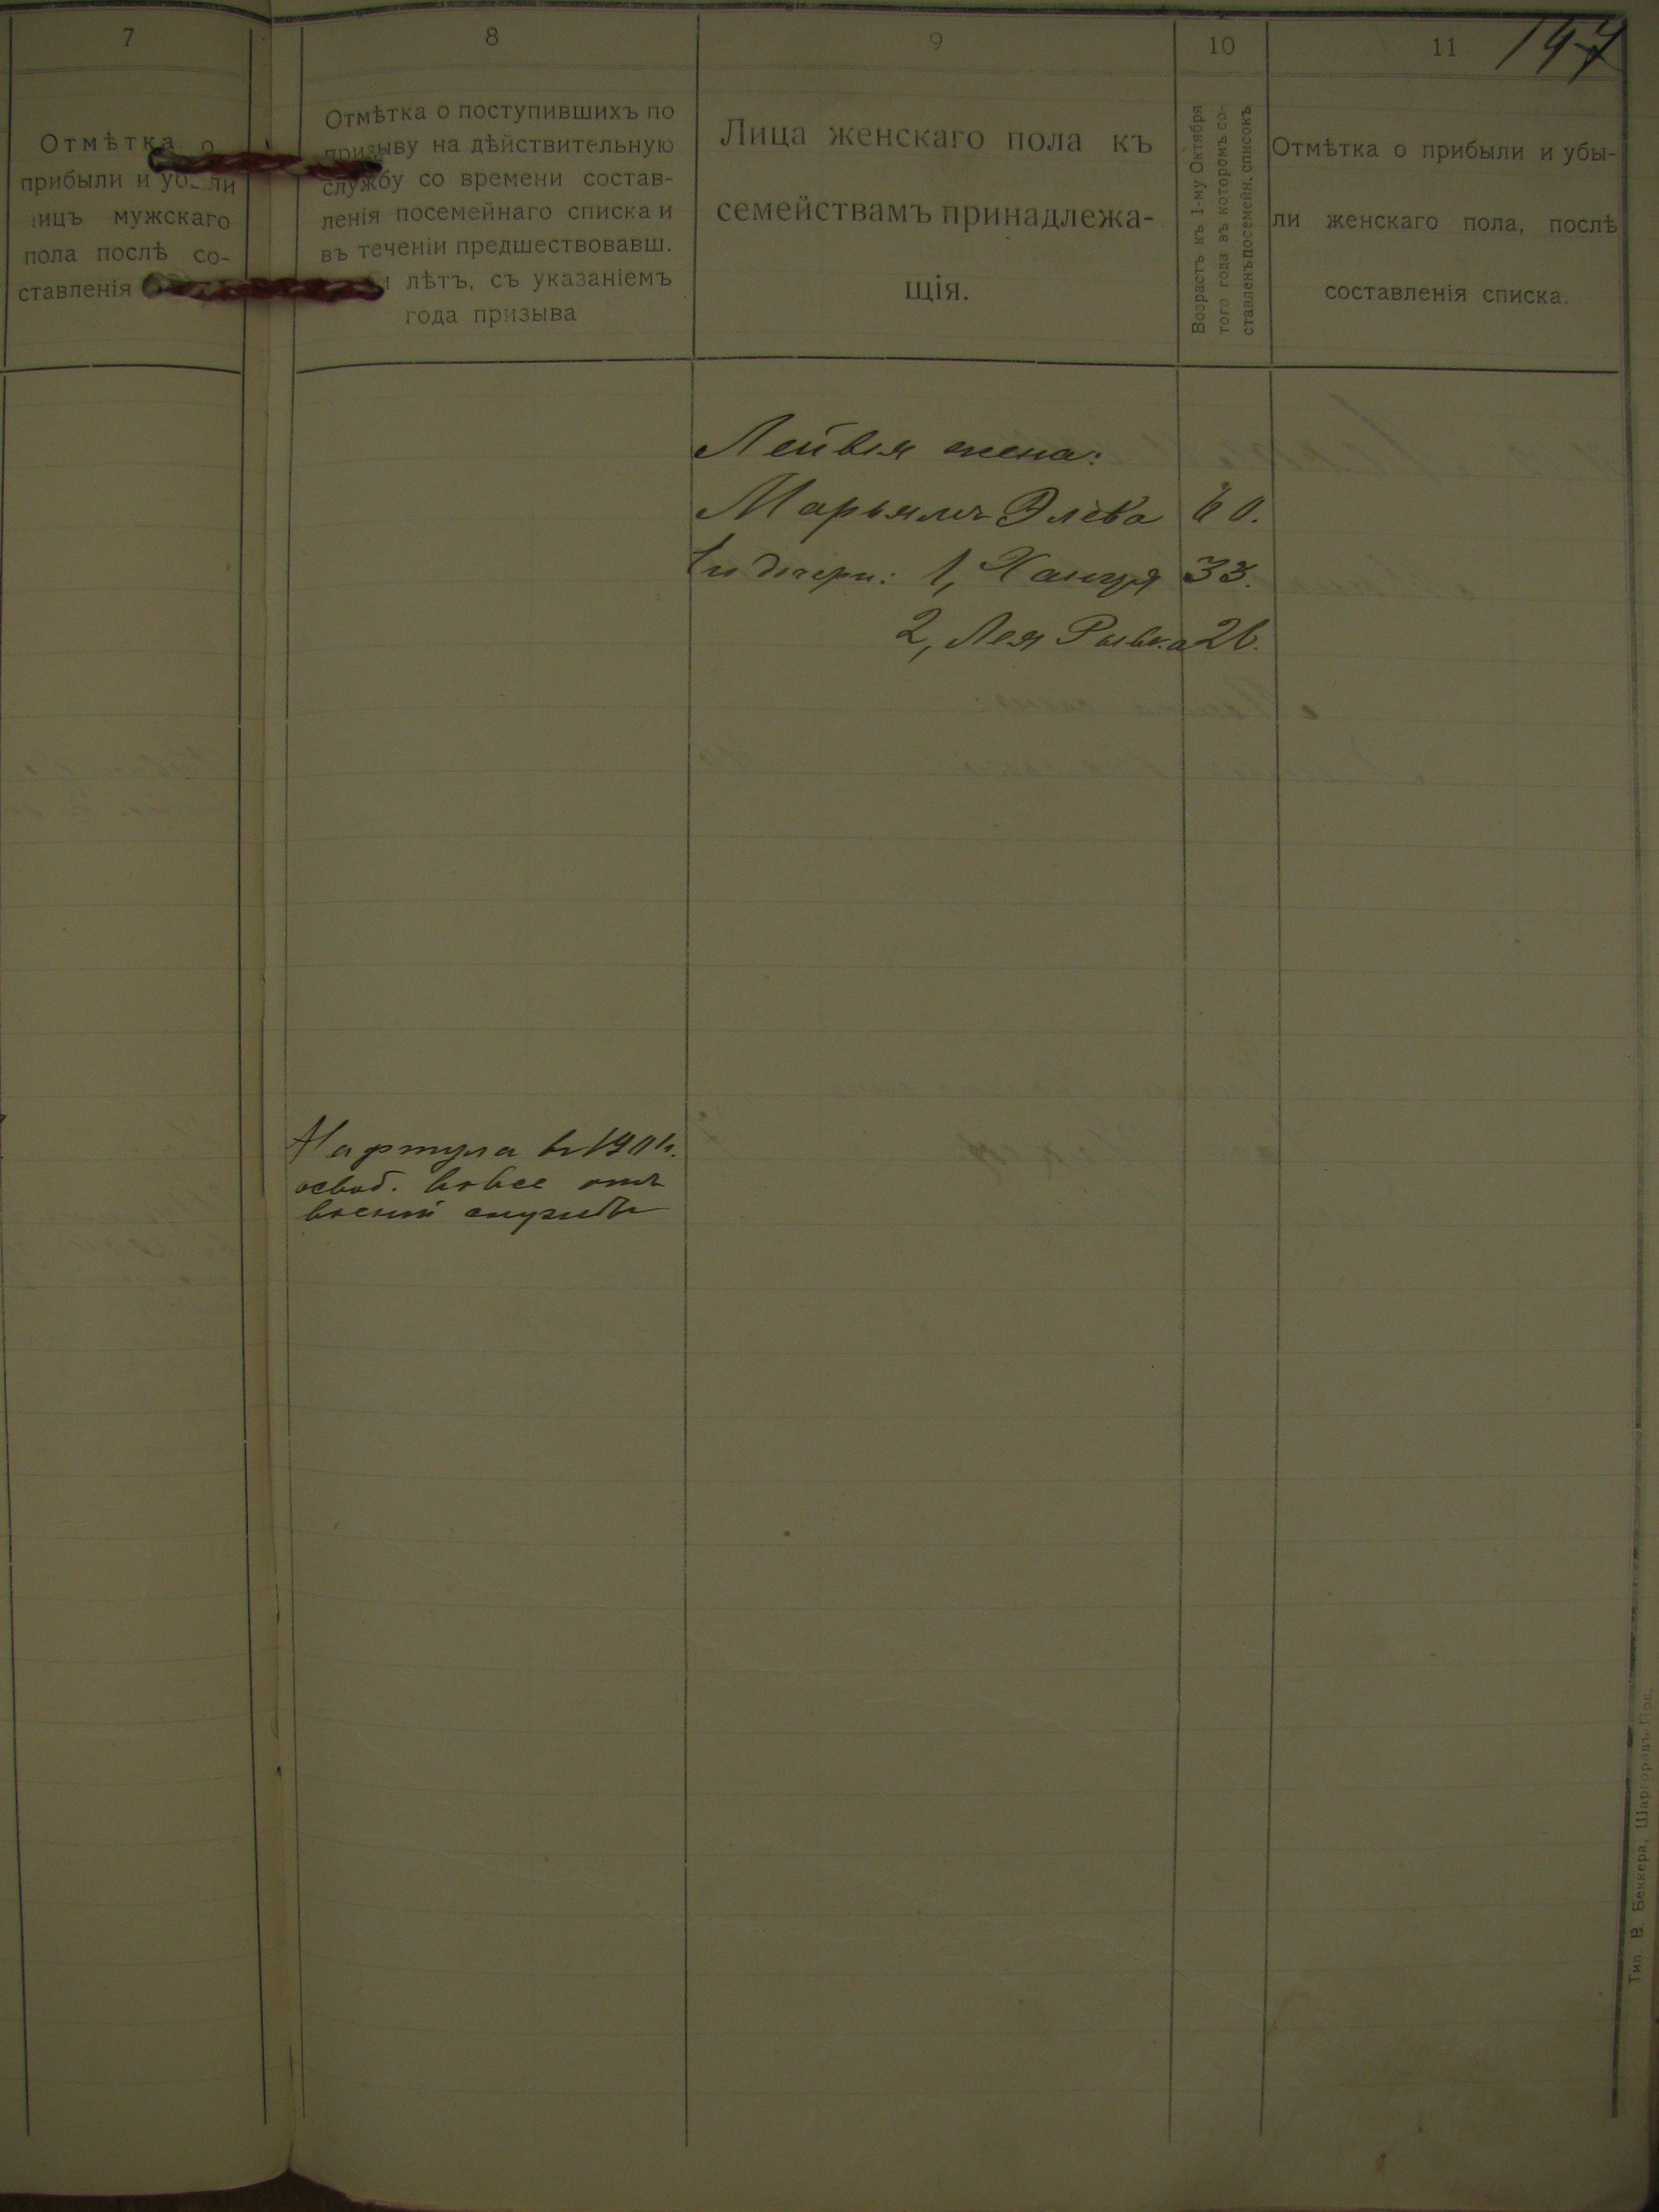 7
8
9
10
11
147
Отмѣтка о
прибыли и
лицъ мужскаго
пола послѣ со-
ставленія
Отмѣтка о поступившихъ по
призыву на дѣйствительную
службу со времени состав-
ленія посемейнаго списка и
въ теченіи предшествовавш.
лѣтъ, съ указаніемъ
года призыва
Лица женскаго пола къ
семействамъ принадлежа-
щія.
Возрастъ къ 1-му Октября
того года въ которомъ со-
ставленъ посемейн. списокъ
Отмѣтка о прибыли и убы-
ли женскаго пола, послѣ
составленія списка.
жена:
Марьямъ 60.
дочери: 1, 33.
2, Лея Рывка 26.
въ
освоб. вовсе отъ
военной службы
Тип. В. Беккера, Шаргородъ-Под.